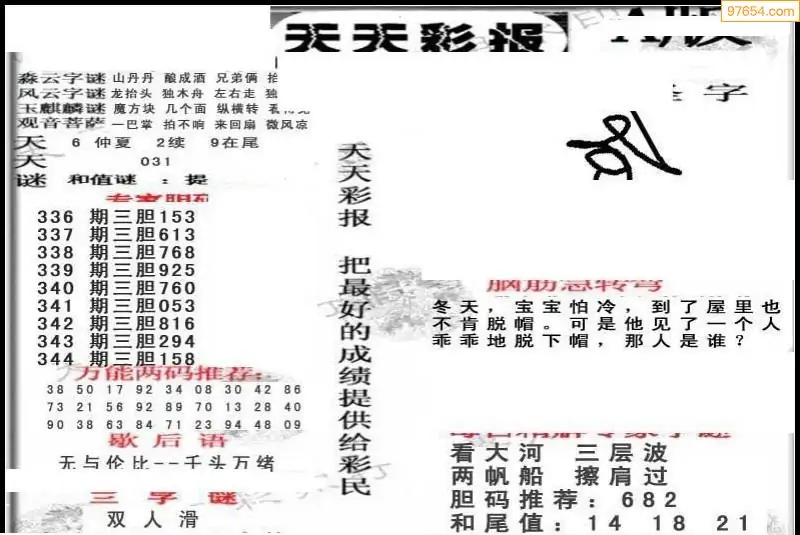 97654.com
天天彩报
字
森云字谜 山丹丹 酿成酒 兄弟俩
风云字谜 龙抬头 独木舟 左右走 独
玉麒麟谜 魔方块 几个面 纵横转
观音菩萨 一巴掌 拍不响 来回扇 微风凉
天 6 仲夏 2续 9在尾
天 031
谜 和值谜 : 提
336 期三胆153
337 期三胆613
338 期三胆768
339 期三胆925
340 期三胆760
341 期三胆053
342 期三胆816
343 期三胆294
344 期三胆158
万能两码推荐:
38 50 17 92 34 08 30 42 86
73 21 56 92 89 70 13 28 40
90 38 63 84 71 23 94 48 09
歇后语
无与伦比--千头万绪
三字谜
双人滑
天天彩报 把最好的成绩提供给彩民
脑筋急转弯
冬天，宝宝怕冷，到了屋里也
不肯脱帽。可是他见了一个人
乖乖地脱下帽，那人是谁？
看大河 三层波
两帆船 擦肩过
胆码推荐：682
和尾值：14 18 21